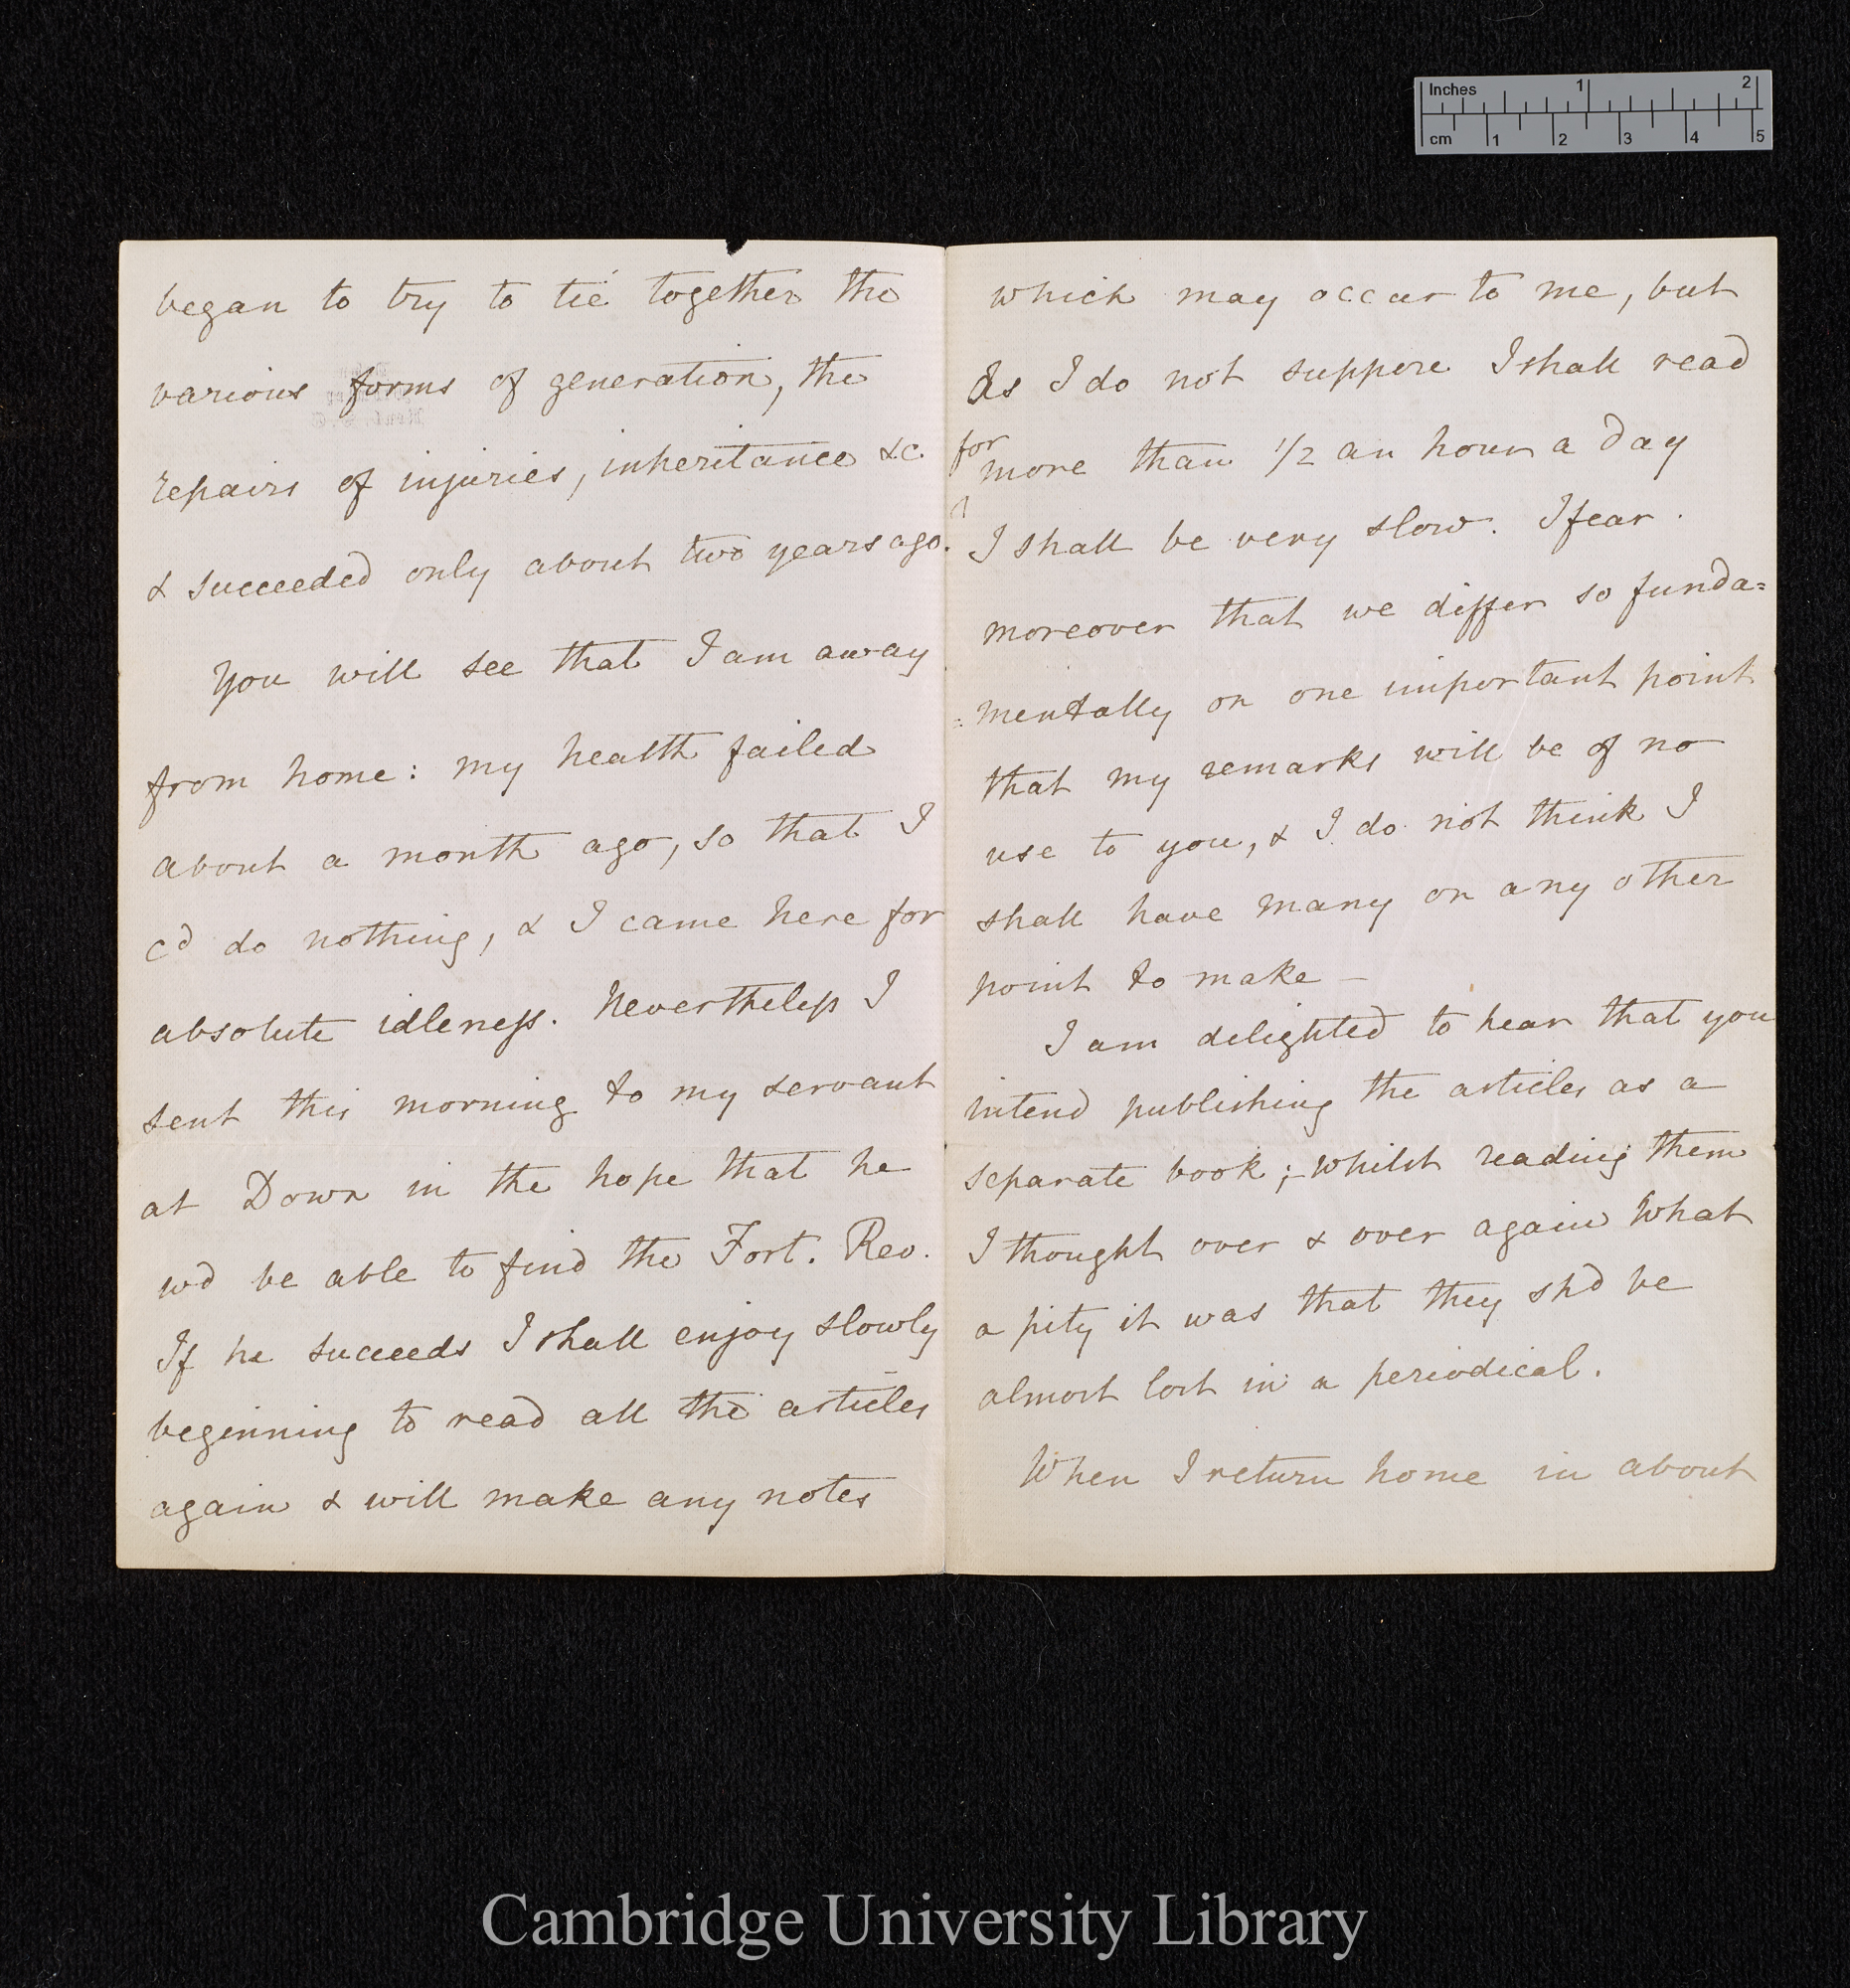 began to try to tie together the
various forms of generation, the
repairs of injuries, inheritance &c.
& succeeded only about two years ago.
You will see that I am away
from home: my health failed
about a month ago, so that I
cd do nothing, & I came here for
absolute idleness. Nevertheless I
sent this morning to my servant
at Down in the hope that he
wd be able to find the Fort. Rev.
If he succeeds I shall enjoy slowly
beginning to read all the articles
again & will make any notes
which may occur to me, but
As I do not suppose I shall read
for more than 1/2 an hour a day
I shall be very slow. I fear.
moreover that we differ so funda=
=mentally on one important point
that my remarks will be of no
use to you, & I do not think I
shall have many or any other
point to make —
I am delighted to hear that you
intend publishing the articles as a
separate book; whilst reading them
I thought over & over again what
a pity it was that they shd be
almost lost in a periodical.
When I return home in about
Inches 1 2
cm 1 2 3 4 5
Cambridge University Library